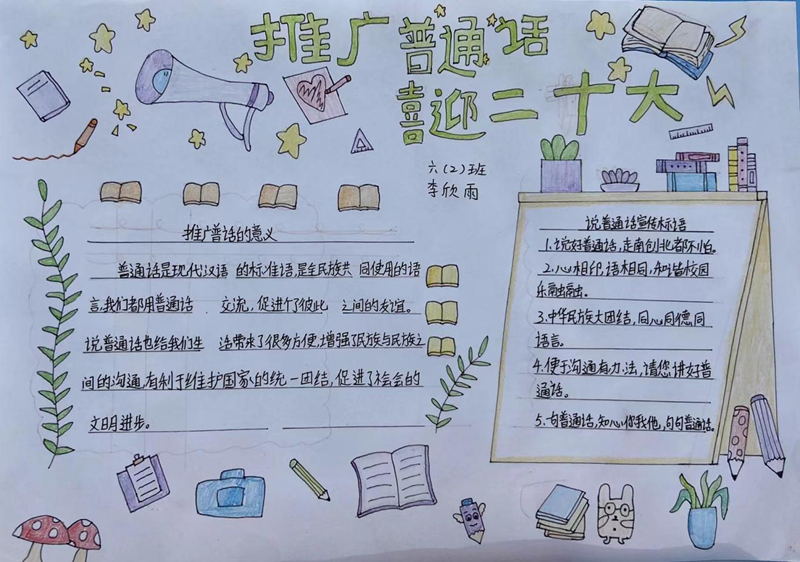 推广普通话
喜迎二十大
六(2)班
李欣雨
推广普话的意义
普通话是现代汉语 的标准语,是全民族共 同使用的语
言,我们都用普通话 交流,促进了彼此 之间的友谊。
说普通话也给我们生 活带来了很多方便,增强了民族与民族之
间的沟通,有利于维护国家的统一团结,促进了社会的
文明进步。
说普通话宣传标语
1.说好普通话,走南创北都不怕。
2.心相印,语相同,和谐校园
乐融融。
3.中华民族大团结,同心同德同
语言。
4.便于沟通有办法,请您讲好普
通话。
5.句普通话,知心你我他,句句普通话。